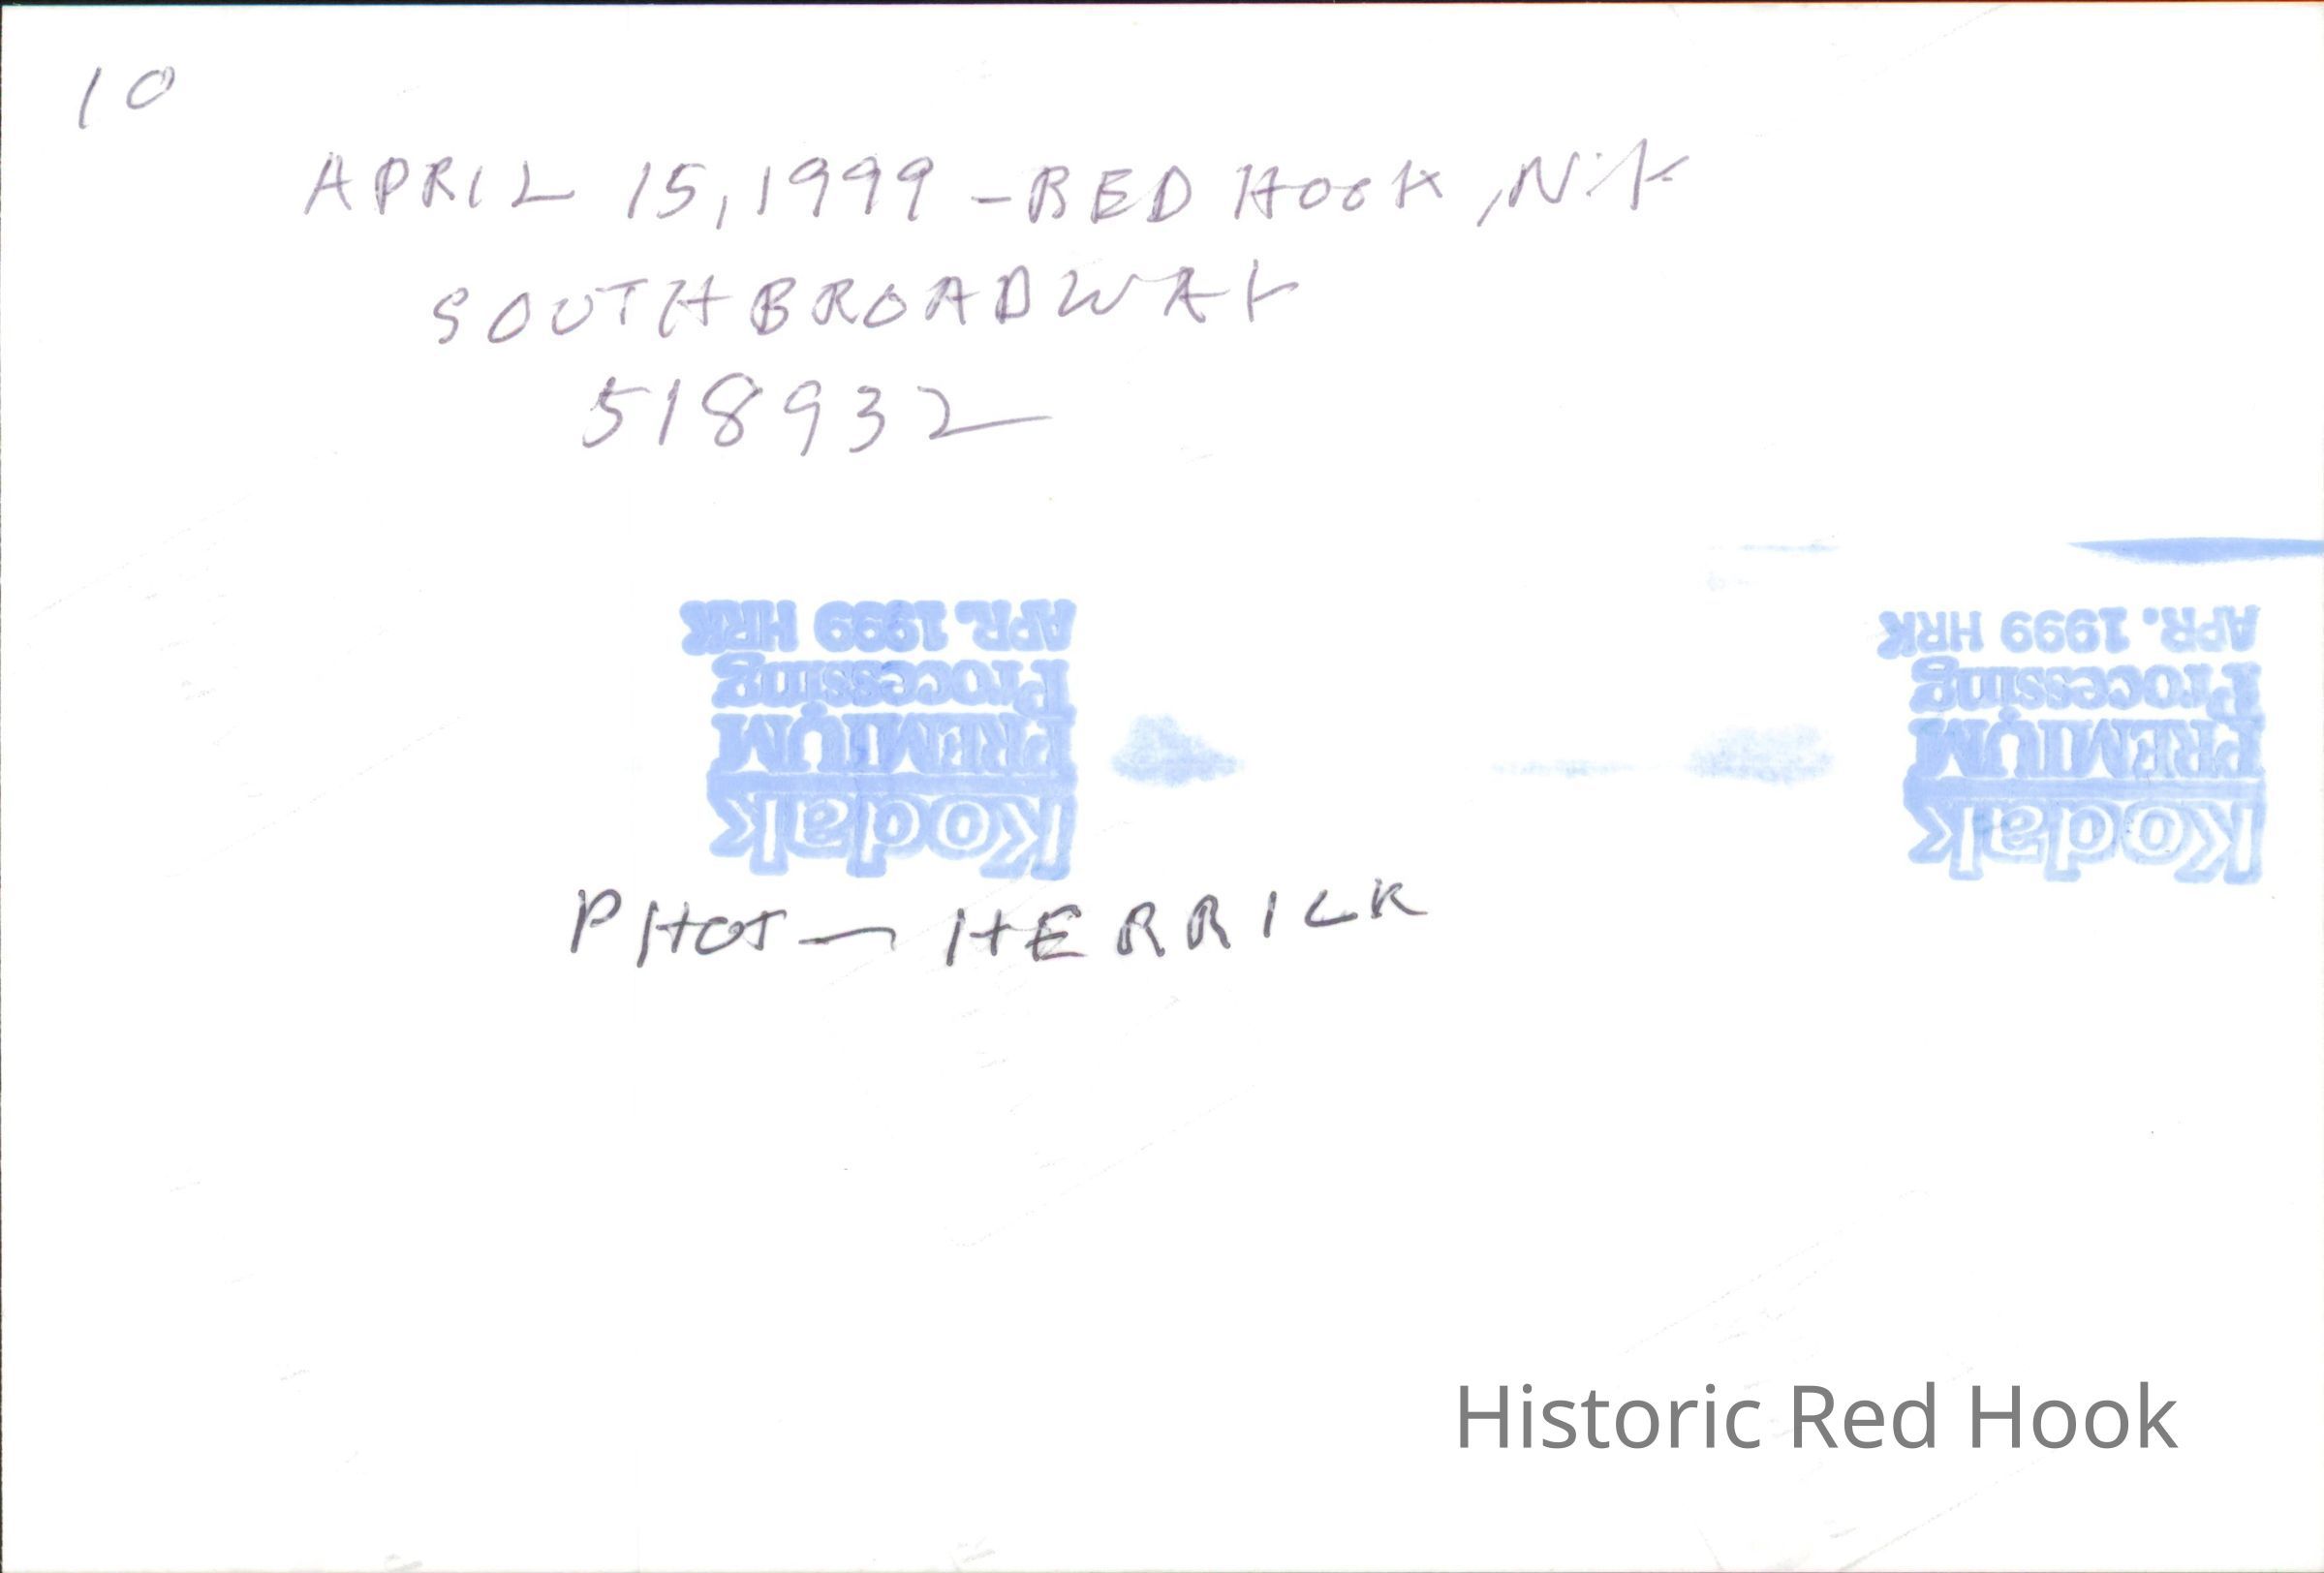 10
APRIL 15, 1999 - RED HOOK, N.Y.
SOUTH BROADWAY
518932
APR. 1999 HRK
Processing
PREMIUM
Kodak
APR. 1999 HRK
Processing
PREMIUM
Kodak
PHOT - HERRICK
Historic Red Hook